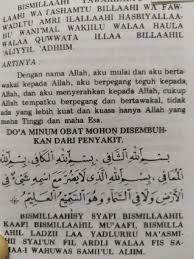 BISMILLAAHI
LAAHI WA'TASHAMTU BILLAAHI WA FAW-
WADLTU AMRI ILALLAAHI HASBIYALLAA-
HU WANI'MAL WAKIILU WALAA HAULA
WALAA QUWWATA ILLAA BILLAAHIL
'ALIYYIL 'ADHIIM.
ARTINYA :
Dengan nama Allah, aku mulai dan aku berta-
wakal kepada Allah, aku berpegang teguh kepada
Allah, dan aku menyerahkan kepada Allah, cukup
Allah tempatku berpegang dan bertawakal, tidak
ada yang lebih kuat dan kuasa hanya Allah yang
maha Tinggi dan maha Esa.
DO'A MINUM OBAT MOHON DISEMBUH-
KAN DARI PENYAKIT.
بِسْمِ اللَّهِ الشَّافِي بِسْمِ اللَّهِ الْكَافِي بِسْمِ اللَّهِ
الْمُعَافِي بِسْمِ اللَّهِ الَّذِي لَا يَضُرُّ مَعَ اسْمِهِ شَيْءٌ
فِي الْأَرْضِ وَلَا فِي السَّمَاءِ وَهُوَ السَّمِيعُ الْعَلِيمُ
BISMILLAAHISY SYAFI BISMILLAAHIL
KAAFI BISMILLAAHIL MU'AAFI, BISMILLA-
AHIL LADZII LAA YADLURRU MA'ASMI-
HI SYAI'UN FIL ARDLI WALAA FIS SA-
MAA-I WAHUWAS SAMII'UL ALIIM.